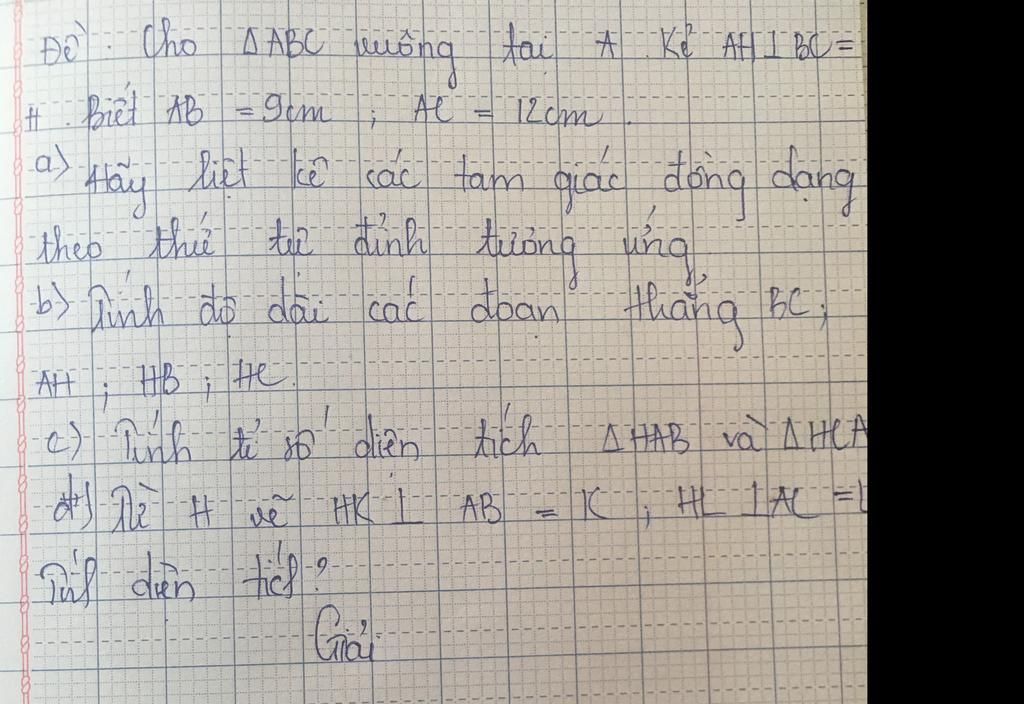 Đề. Cho ΔABC vuông tại A Kẻ AH⊥BC=
H. Biết AB = 9cm ; AC = 12cm.
a) Hãy liệt kê các tam giác đồng dạng
theo thứ tự đỉnh tương ứng
b) Tính độ dài các đoạn thẳng BC;
AH ; HB ; HC.
c) Tính tỉ số diện tích ΔHAB và ΔHCA
d) Từ H vẽ HK⊥ AB = K ; HL ⊥AC =L
Tính diện tích?
Giải